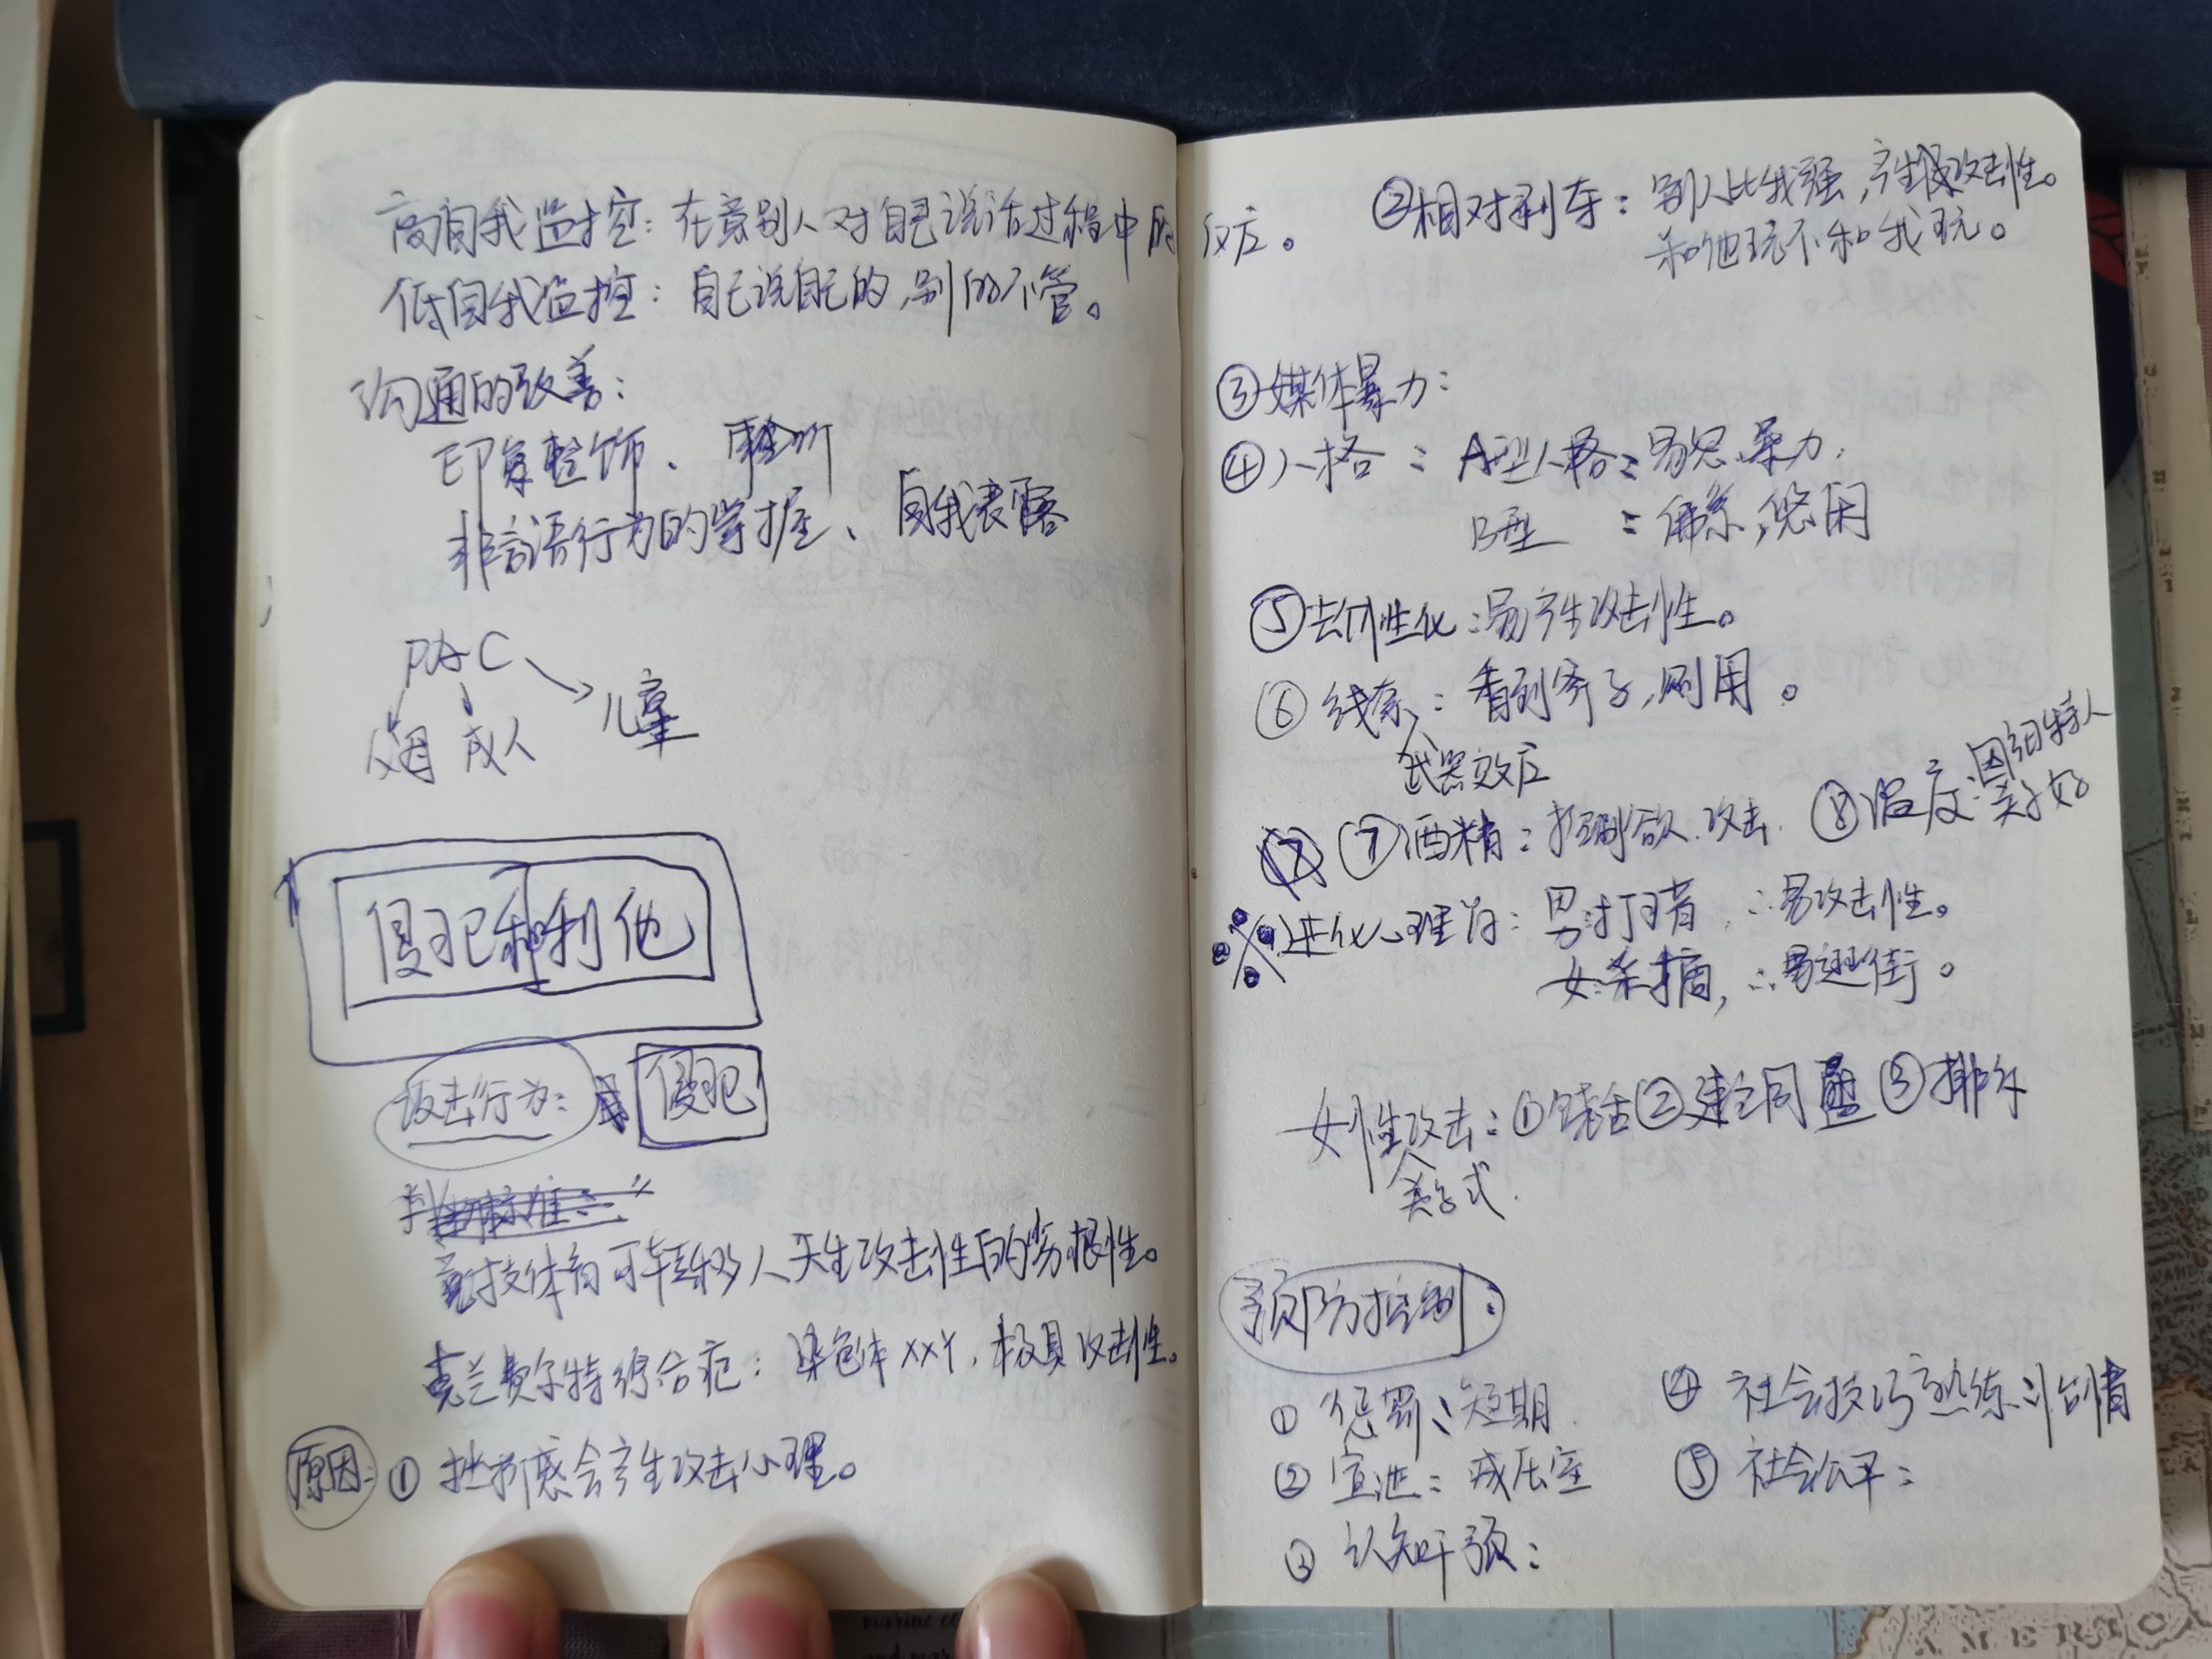 高自我监控：在意别人对自己说话过程中的反应。
低自我监控：自己说自己的，别的不管。
沟通的改善：
印象整饰、聆听
非言语行为的掌握、自我表露
PAC
父母 成人 儿童
侵犯和利他
攻击行为：侵犯
竞技体育可转移人天生攻击性的劣根性。
克兰费尔特综合症：染色体XXY，极具攻击性。
原因：① 挫折感会产生攻击心理。
②相对剥夺：别人比我强，产生攻击性。
和他玩不和我玩。
③媒体暴力：
④人格：A型人格：易怒、暴力，
B型：佛系，悠闲
⑤去个性化：易产生攻击性。
⑥线索：看到斧子，则用。
武器效应
⑦酒精：控制欲、攻击. ⑧温度：
进化心理学：男：打猎，∴易攻击性。
女：采摘，∴易逛街。
女性攻击：①饶舌②建立同盟③排斥
方式.
预防控制：
① 惩罚：短期.
② 宣泄：减压室
③ 认知干预：
④ 社会技巧熟练：
⑤ 社会公平：